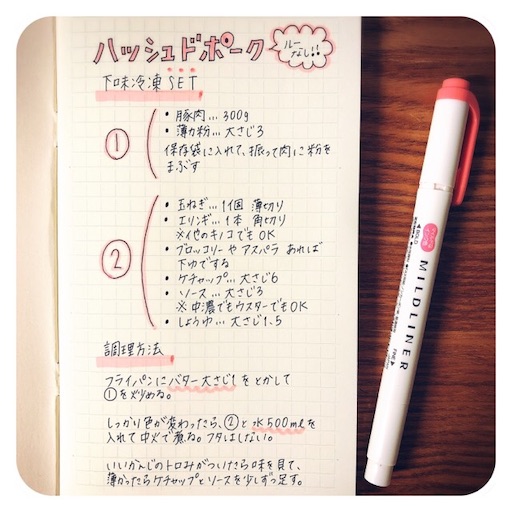 ハッシュドポーク
ルーなし!!
下味冷凍SET
①
・豚肉…300g
・薄力粉…大さじ3
保存袋に入れて、振って肉に粉を
まぶす
②
・玉ねぎ…1個 薄切り
・エリンギ…1本 角切り
※他のキノコでもOK
・ブロッコリーや アスパラ あれば
下ゆでする
・ケチャップ…大さじ6
・ソース…大さじ3
※中濃でもウスターでもOK
・しょうゆ…大さじ1.5
調理方法
フライパンにバター大さじ1をとかして
①を炒める。
しっかり色が変わったら、②と水500mlを
入れて中火で煮る。フタはしない。
いいかんじのトロみがついてきたら味を見て、
薄かったらケチャップとソースを少しずつ足す。
MILDLINER